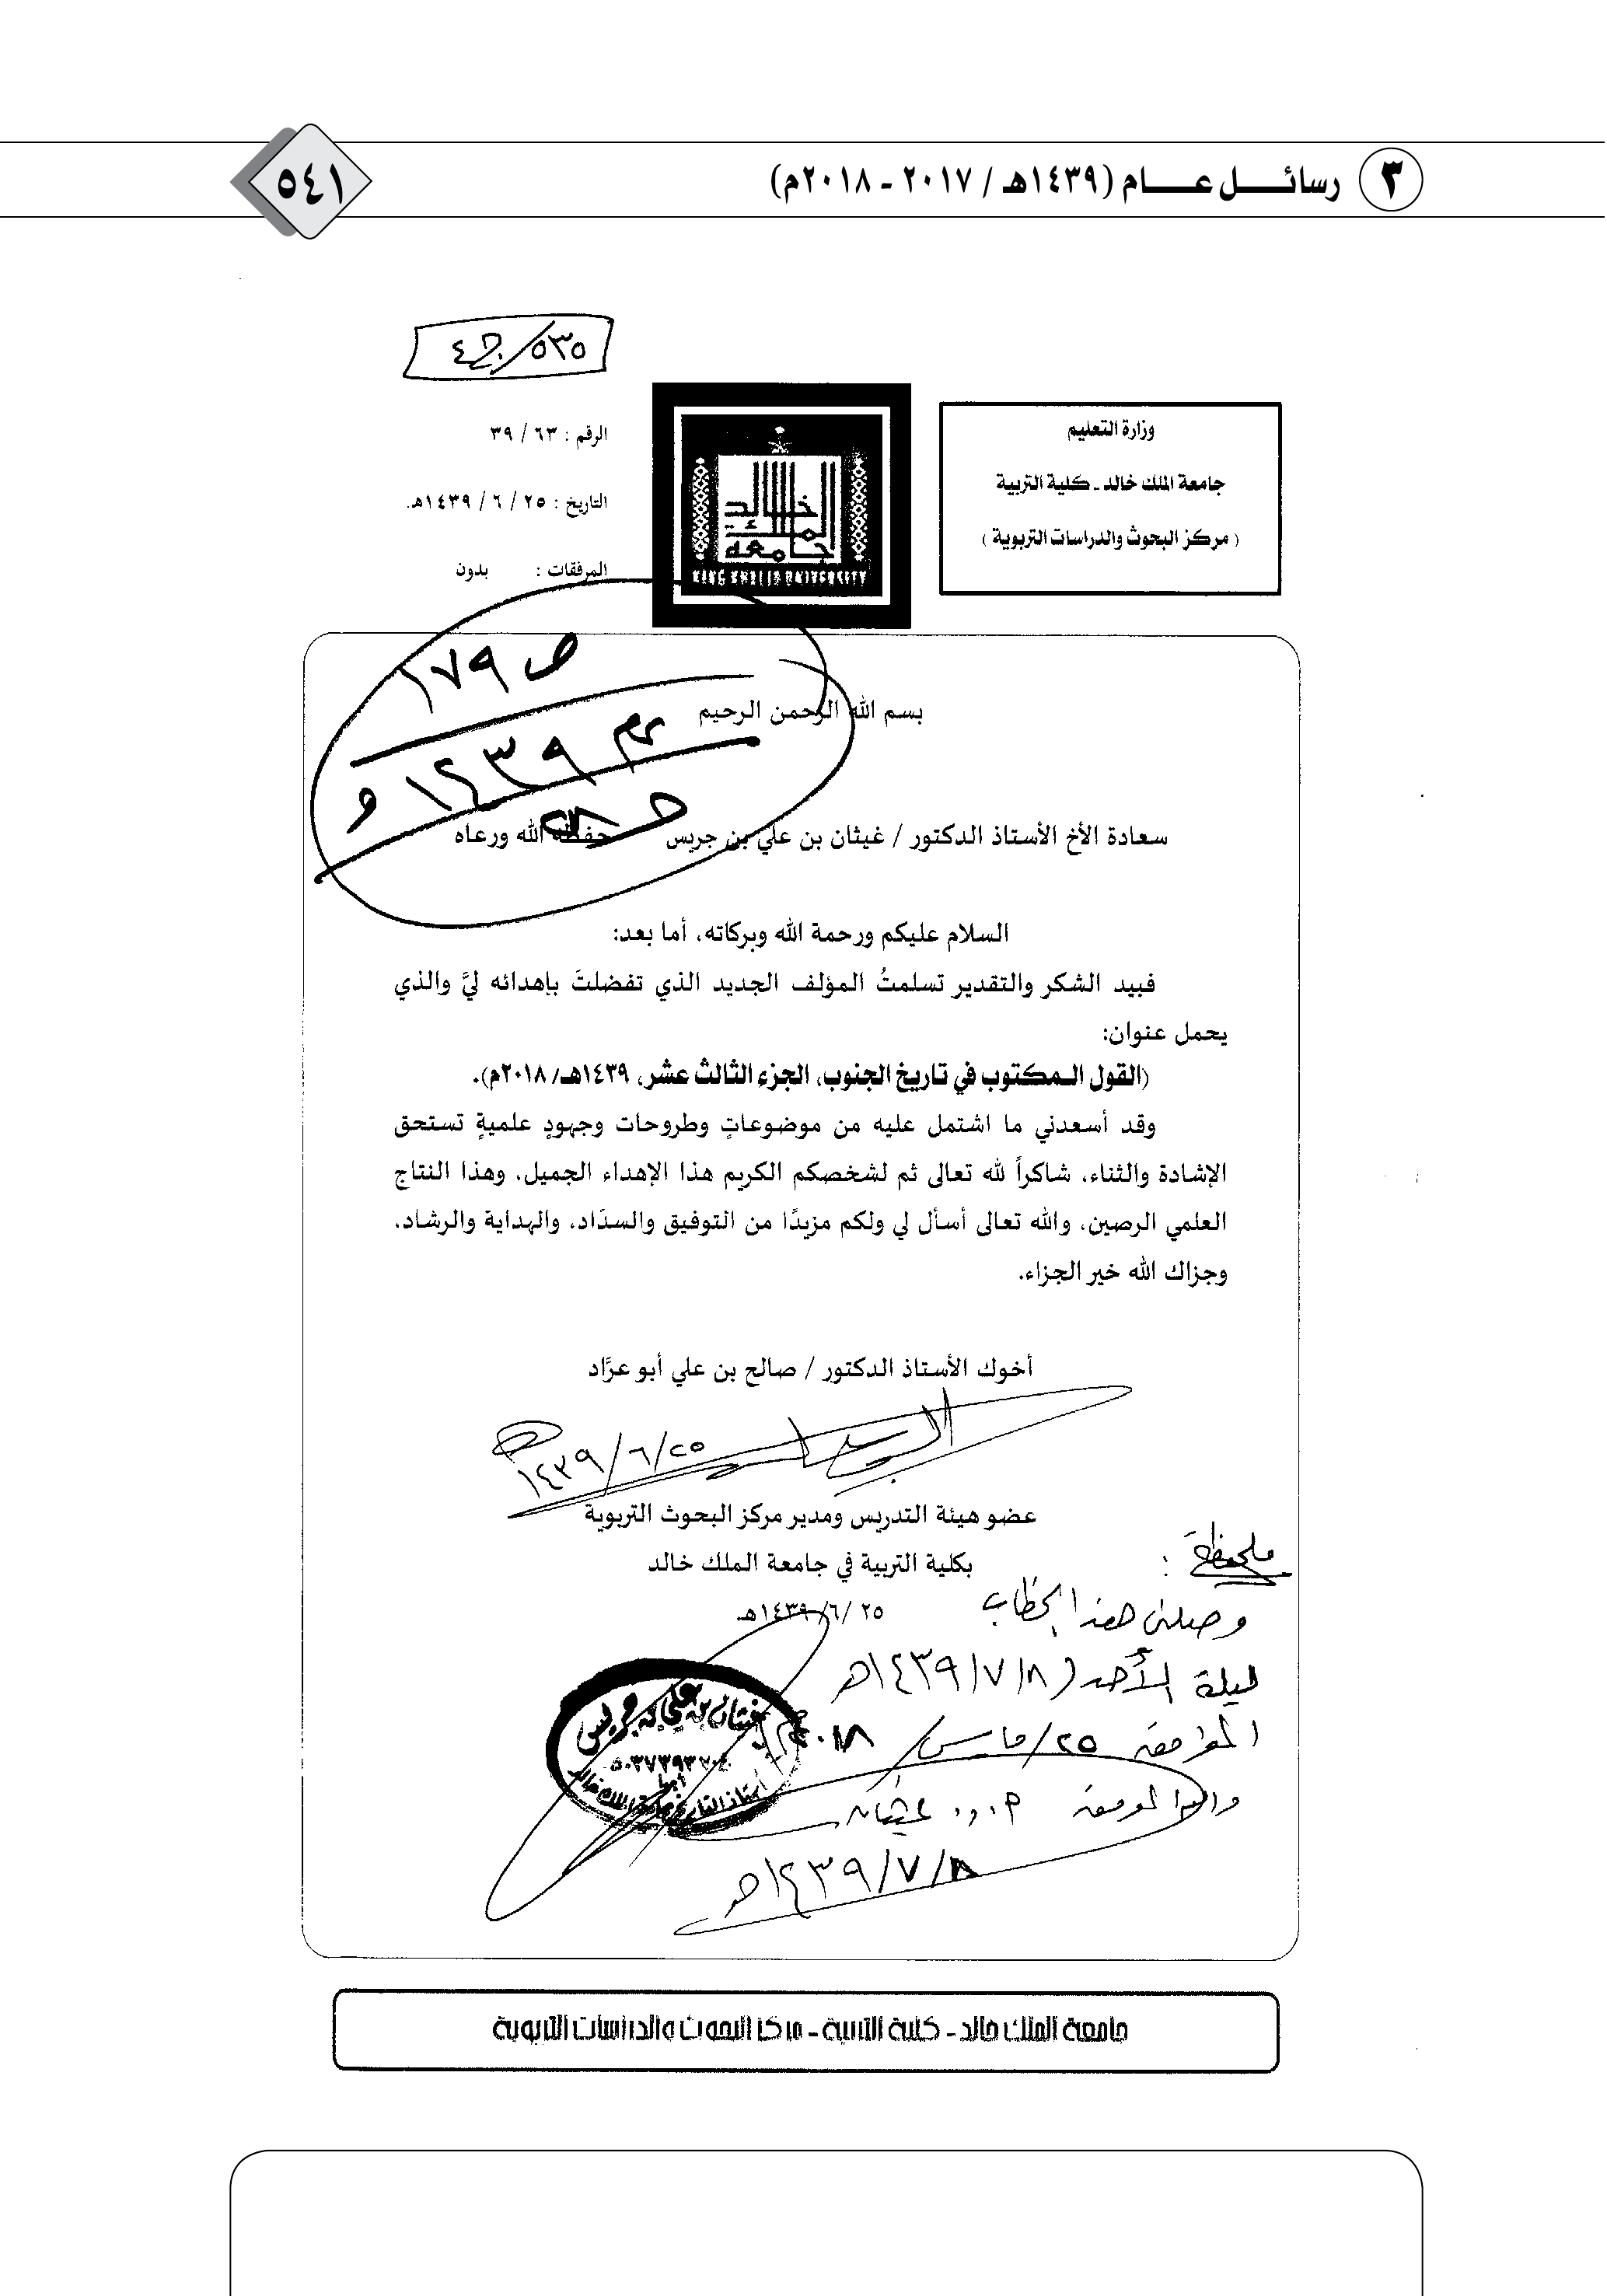 ٣ رسائل عام (١٤٣٩هـ / ٢٠١٧ - ٢٠١٨م)
٥٤١
٥٣٥/ج٤
وزارة التعليم
جامعة الملك خالد - كلية التربية
( مركز البحوث والدراسات التربوية )
KING KHALID UNIVERSITY
الرقم : ٦٣ / ٣٩
التاريخ : ٢٥ / ٦ / ١٤٣٩هـ.
المرفقات : بدون
ص ١٧٩
١٤٣٩
بسم الله الرحمن الرحيم
سعادة الأخ الأستاذ الدكتور / غيثان بن علي بن جريس حفظه الله ورعاه
السلام عليكم ورحمة الله وبركاته، أما بعد:
فبيد الشكر والتقدير تسلمتُ المؤلف الجديد الذي تفضلتَ بإهدائه ليَّ والذي
يحمل عنوان:
(القول المكتوب في تاريخ الجنوب، الجزء الثالث عشر، ١٤٣٩هـ/ ٢٠١٨م).
وقد أسعدني ما اشتمل عليه من موضوعاتٍ وطروحات وجهودٍ علميةٍ تستحق
الإشادة والثناء، شاكراً لله تعالى ثم لشخصكم الكريم هذا الإهداء الجميل، وهذا النتاج
العلمي الرصين، والله تعالى أسأل لي ولكم مزيدًا من التوفيق والسدَاد، والهداية والرشاد.
وجزاك الله خير الجزاء.
أخوك الأستاذ الدكتور / صالح بن علي أبو عرَّاد
١٤٣٩/٦/٢٥
عضو هيئة التدريس ومدير مركز البحوث التربوية
بكلية التربية في جامعة الملك خالد
٢٥ /٦/ ١٤٣٩هـ
ملحوظة :
وصلني هذا الخطاب
ليلة الأحد (١٤٣٩/٧/٨هـ
الموافق ٢٥/مارس/ ٢٠١٨م)
والله الموفق أ.د. غيثان
١٤٣٩/٧/٨هـ
غيثان بن علي بن جريس
أبها
أستاذ التاريخ بجامعة الملك خالد
جامعة الملك خالد - كلية التربية - مركز البحوث والدراسات التربوية